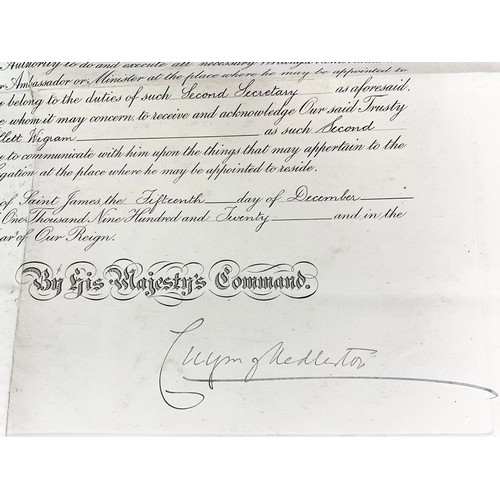 Authority to do and execute all necessary
r Ambassador or Minister at the place where he may be appointed to
y belong to the duties of such Second Secretary as aforesaid.
e whom it may concern, to receive and acknowledge Our said Trusty
llett Wigram as such Second
y to communicate with him upon the things that may appertain to the
egation at the place where he may be appointed to reside.
of Saint James, the Fifteenth day of December
One Thousand Nine Hundred and Twenty and in the
ear of Our Reign.
By His Majesty's Command.
Curzon of Kedleston